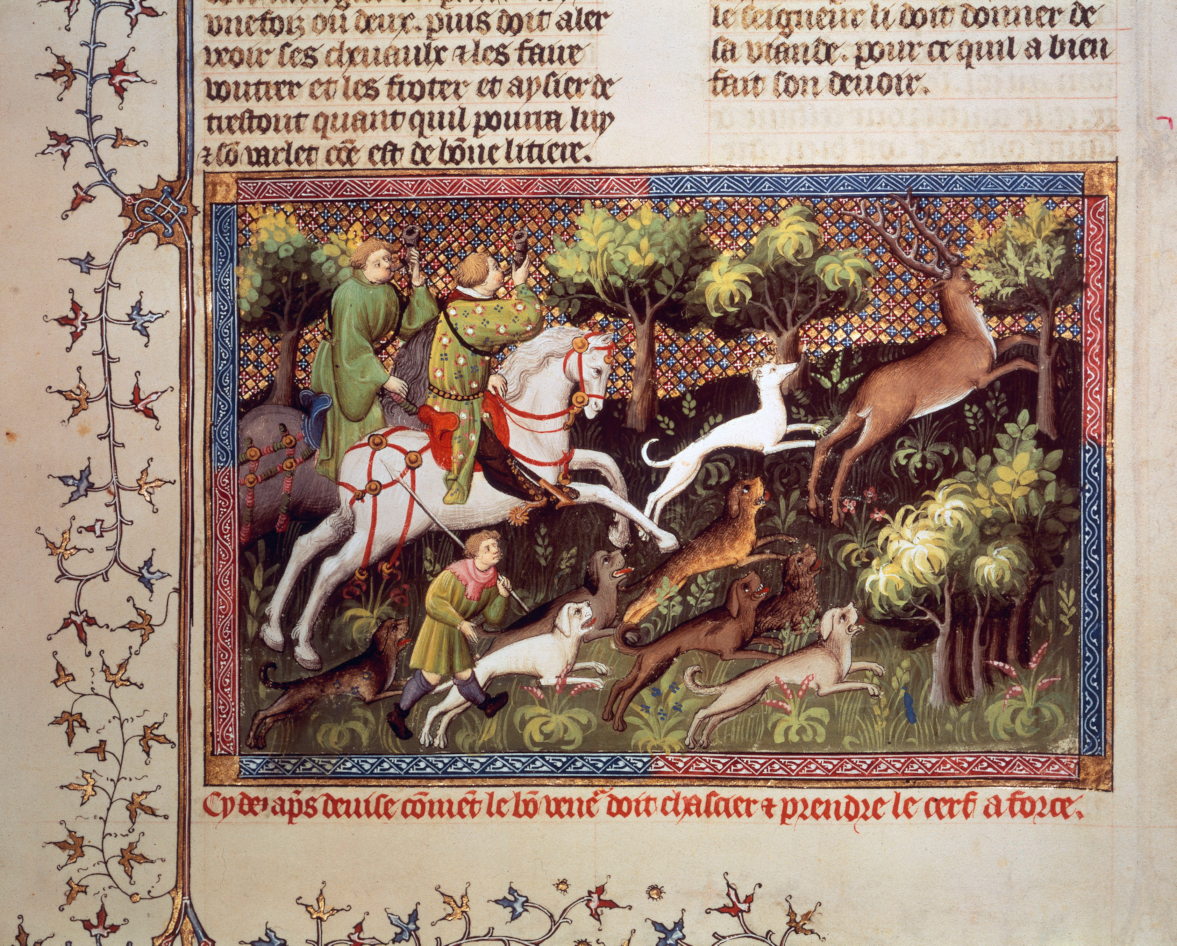 vne foiz ou deux. puis doit aler
veoir ses cheuaulx ⁊ les faire
et les froter et aysier de
trestout quant quil pourra luy
⁊ sō varlet cōe est de bōne litiere.
le seigneur li doit donner de
sa viande. pour ce quil a bien
fait son deuoir.
Cy apſ deuise cōmēt le bō venē doit chascier ⁊ prendre le cerf a force.